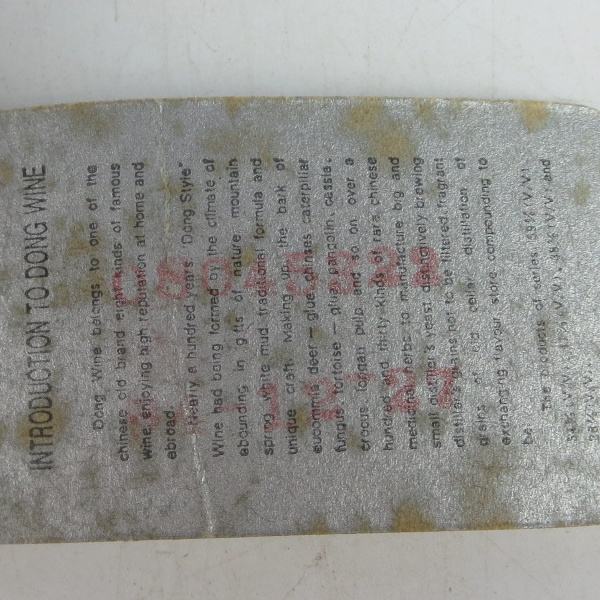 INTRODUCTION TO DONG WINE
Dong Wine belongs to one of the
chinese old brand eight kinds of famous
wine, enjoying high reputation at home and
abroad.
Nearly a hundred years "Dong Style"
Wine had being formed by the climate of
abounding in gifts of nature mountain
spring, white mud, traditional formula and
unique craft. Making up the bark of
eucommia, deer — glue, chinaes caterpillar
fungus, tortoise — glue, pangolin, cassia,
crocus, longan pulp and so on over a
hundred and thirty kinds of rare chinese
medicinal herbs to manufacture big and
small distiller's yeast, distinctively brewing
distiller's grains not to be filtered, fragrant
grains of old cellar, distillation of
exchanging flavour, store, compounding to
be.
The products of series: 59% (V/V),
54% (V/V), 38% (V/V) and
28% (V/V)